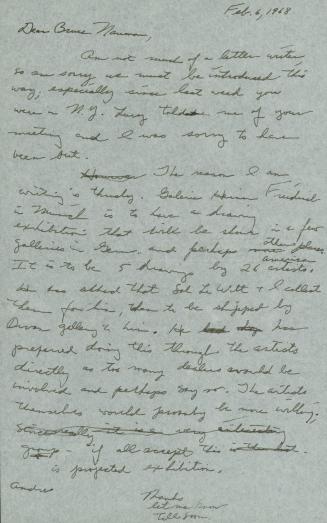 Feb. 6, 1968
Dear Bruce Nauman,
Am not much of a letter writer,
so am sorry we must be introduced this
way, especially since last week you
were in N.Y. Larry told me of your
meeting and I was sorry to have
been out.
The reason I am
writing is thusly. Galerie Heiner Friedrich
in Munich is to have a drawing
exhibition that will be shown in a few
galleries in Ger. and perhaps other places
It is to be 5 drawings by 26 american artists.
He has asked that Sol LeWitt + I collect
them for him, then to be shipped by
Dwan gallery to him. He has
preferred doing this through the artists
directly as too many dealers would be
involved and perhaps say no. The artists
themselves would probably be more willing.
if all accept this
is projected exhibition.
Andre
Thanks
let me know
soon